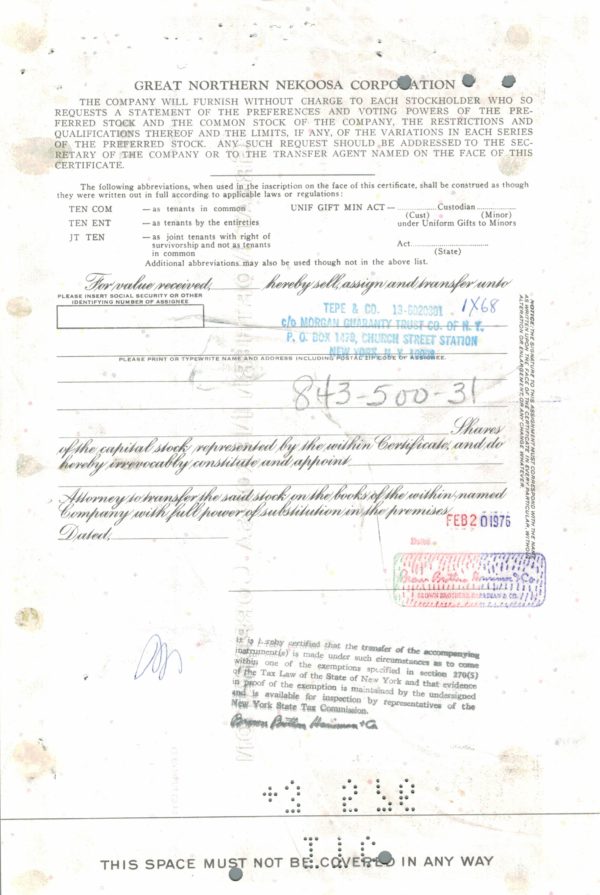 GREAT NORTHERN NEKOOSA CORPORATION
THE COMPANY WILL FURNISH WITHOUT CHARGE TO EACH STOCKHOLDER WHO SO
REQUESTS A STATEMENT OF THE PREFERENCES AND VOTING POWERS OF THE PRE-
FERRED STOCK AND THE COMMON STOCK OF THE COMPANY, THE RESTRICTIONS AND
QUALIFICATIONS THEREOF AND THE LIMITS, IF ANY, OF THE VARIATIONS IN EACH SERIES
OF THE PREFERRED STOCK. ANY SUCH REQUEST SHOULD BE ADDRESSED TO THE SEC-
RETARY OF THE COMPANY OR TO THE TRANSFER AGENT NAMED ON THE FACE OF THIS
CERTIFICATE.
The following abbreviations, when used in the inscription on the face of this certificate, shall be construed as though
they were written out in full according to applicable laws or regulations:
TEN COM — as tenants in common
TEN ENT — as tenants by the entireties
JT TEN — as joint tenants with right of
survivorship and not as tenants
in common
UNIF GIFT MIN ACT — Custodian
(Cust) (Minor)
under Uniform Gifts to Minors
Act
(State)
Additional abbreviations may also be used though not in the above list.
For value received, hereby sell, assign and transfer unto
PLEASE INSERT SOCIAL SECURITY OR OTHER
IDENTIFYING NUMBER OF ASSIGNEE
TEPE & CO. 13-6020301 1X68
c/o MORGAN GUARANTY TRUST CO. OF N. Y.
P. O. BOX 1479, CHURCH STREET STATION
NEW YORK, N. Y. 10008
PLEASE PRINT OR TYPEWRITE NAME AND ADDRESS INCLUDING POSTAL ZIP CODE OF ASSIGNEE.
843-500-31
Shares
of the capital stock represented by the within Certificate, and do
hereby irrevocably constitute and appoint
Attorney to transfer the said stock on the books of the within named
Company with full power of substitution in the premises.
FEB 20 1976
Dated,
NOTICE: THE SIGNATURE TO THIS ASSIGNMENT MUST CORRESPOND WITH THE NAME
AS WRITTEN UPON THE FACE OF THE CERTIFICATE IN EVERY PARTICULAR, WITHOUT
ALTERATION OR ENLARGEMENT OR ANY CHANGE WHATEVER.
Dated
Brown Brothers Harriman & Co.
BROWN BROTHERS HARRIMAN & CO.
It is hereby certified that the transfer of the accompanying
instrument(s) is made under such circumstances as to come
within one of the exemptions specified in section 270(5)
of the Tax Law of the State of New York and that evidence
in proof of the exemption is maintained by the undersigned
and is available for inspection by representatives of the
New York State Tax Commission.
Brown Brothers Harriman & Co
THIS SPACE MUST NOT BE COVERED IN ANY WAY